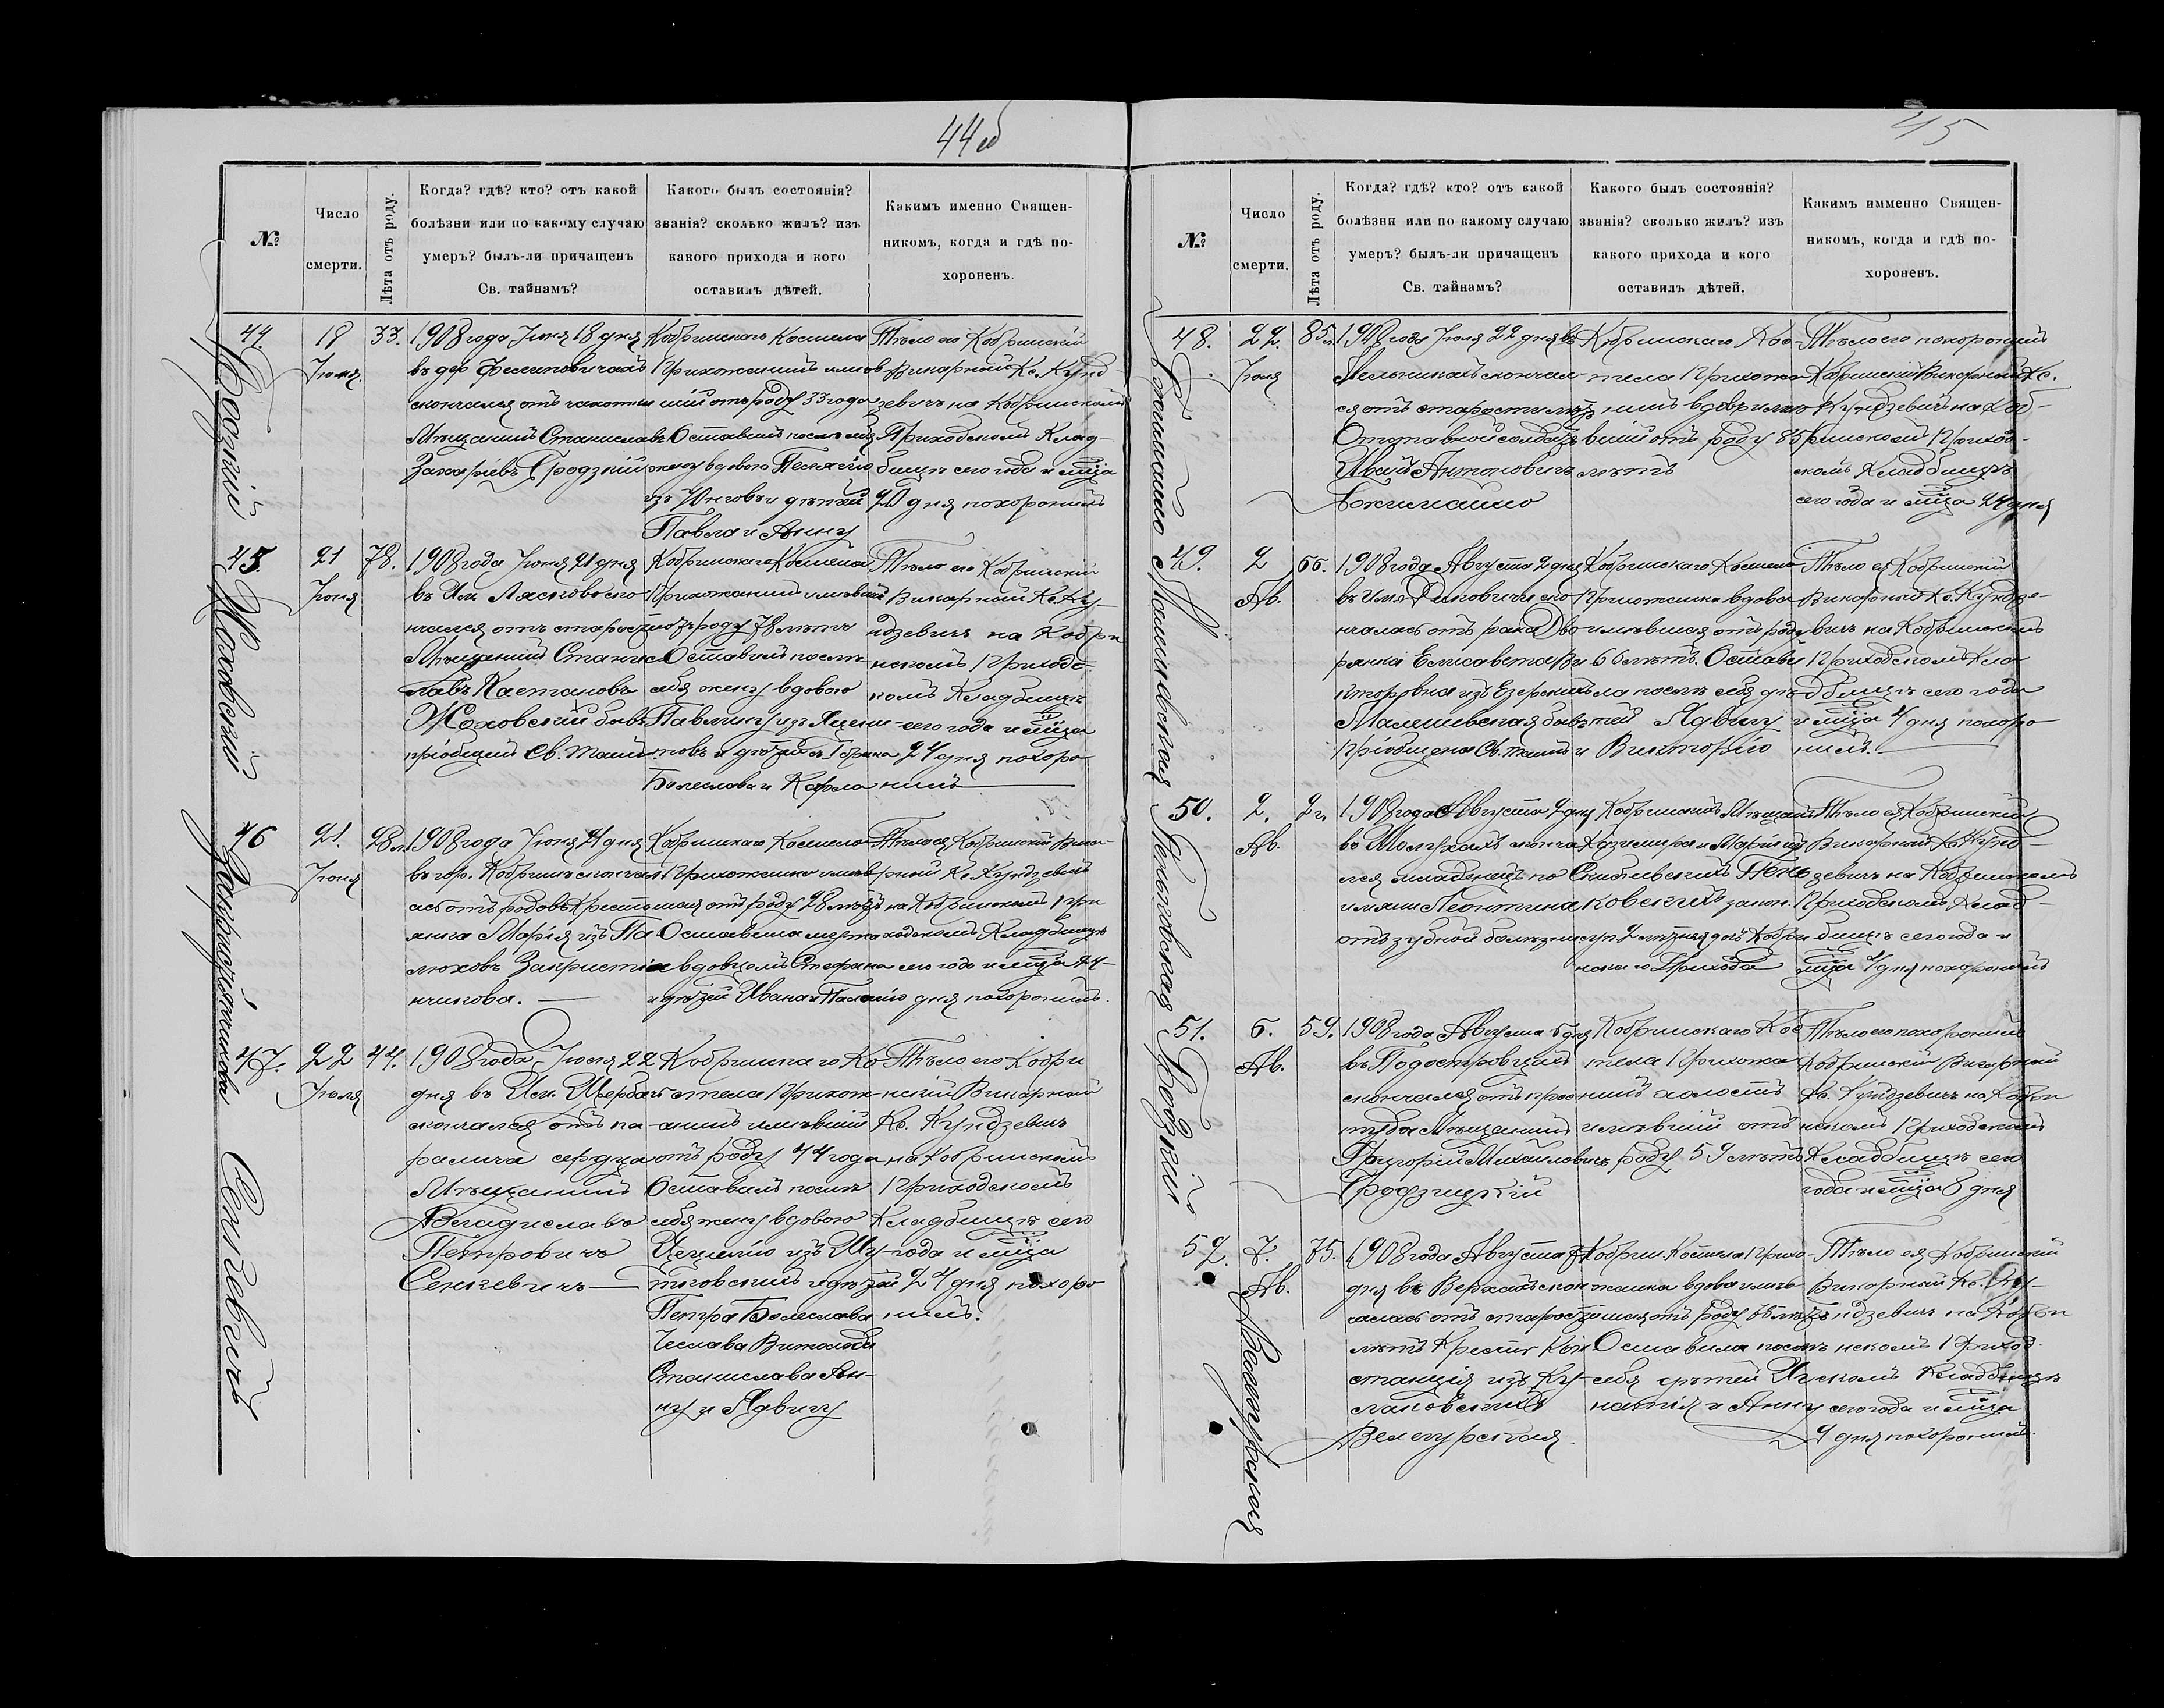 44об
№
Число
смерти.
Лѣта отъ роду.
Когда? гдѣ? кто? отъ какой
болѣзни или по какому случаю
умеръ? былъ-ли причащенъ
Св. тайнамъ?
Какого былъ состоянія?
званія? сколько жилъ? изъ
какого прихода и кого
оставилъ дѣтей.
Какимъ именно Священ-
никомъ, когда и гдѣ по-
хороненъ.
44.
18
Іюня.
33.
1908 года Іюня 18 дня
въ дер
скончался отъ чахотки
Мѣщанинъ Станиславъ
Захаріевъ Гродзкій
Кобринскаго Костела
Прихожанинъ имѣв
шій отъ роду 33 года
Оставилъ послѣ себя
жену вдовою
изъ и дѣтей
Павла и Анну
Тѣло его Кобринскій
Викарный Кс. Кунд
зевичъ на Кобринскомъ
Приходскомъ Клад-
бищѣ сего года и мца
20 дня похоронилъ
45.
21
Іюня
78.
1908 года Іюня 21 дня
въ Им. Лясково ско
нчался отъ старос
Мѣщанинъ Станис
лавъ Каетановъ
Жоховскій бывъ
пріобщенъ Св. Таин.
Жоховскій
Кобринскаго Костела
Прихожанинъ имѣвшій
отъ роду 78 лѣтъ
Оставилъ послѣ
себя жену вдовою
Павлину изъ
и дѣтей съ 1 брака
Болеслава и Карла
Тѣло его Кобринскій
Викарный Кс. Ку
ндзевичъ на Кобри
нскомъ Приходс
комъ Кладбищѣ
сего года и мца
24 дня похоро
нилъ
46
21.
Іюня
28 л.
1908 года Іюня 21 дня
въ гор. Кобринѣ сконча
ась отъ родовъ Кресть
янка Марія изъ Па
люховъ Закристія
нчикова.
Кобринскаго Костела
Прихожанка имѣв
шая отъ роду 28 лѣтъ
Оставила мужа
вдовцомъ Стефана
и дѣтей Ивана и
Тѣло ея Кобринскій Вика-
рный Кс. Кундзевичъ
на Кобринскомъ При
ходскомъ Кладбищѣ
сего года и мца 24
дня похоронилъ.
47.
22
Іюля
44.
1908 года Іюля 22
дня въ Им.
скончался отъ па-
ралича сердца
Мѣщанинъ
Владиславъ
Петровичъ
Сенкевичъ
Сенкевичъ
Кобринскаго Ко
стела Прихож-
анинъ имѣвшій
отъ роду 44 года
Оставилъ послѣ
себя жену вдовою
изъ Шу-
товскихъ и дѣтей
Петра Болеслава
Чеслава Витольда
Станислава Ан-
ну и Ядвигу
Тѣло его Кобри
нскій Викарный
Кс. Кундзевичъ
на Кобринскомъ
Приходскомъ
Кладбищѣ сего
года и мца
24 дня похоро
нилъ.
45
№
Число
смерти.
Лѣта отъ роду.
Когда? гдѣ? кто? отъ какой
болѣзни или по какому случаю
умеръ? былъ-ли причащенъ
Св. тайнамъ?
Какого былъ состоянія?
званія? сколько жилъ? изъ
какого прихода и кого
оставилъ дѣтей.
Какимъ имменно Священ-
никомъ, когда и гдѣ по-
хороненъ.
48.
22.
Іюля
85 л.
1908 года Іюля 22 дня въ
скончал-
ся отъ старости лѣтъ
Отставной солдатъ
Иванъ Антоновичъ
Кобринскаго Кос-
тела Прихожа
нинъ вдовъ имѣ
вшій отъ роду 85
лѣтъ
Тѣло его похоронилъ
Кобринскій Викарный Кс.
Кундзевичъ на Коб-
ринскомъ Приход-
скомъ Кладбищѣ
сего года и мца 24 дня
49.
2
Ав.
66.
1908 года Августа 2 дня
въ Им. ско
нчалась отъ рака Дво
рянка Елисавета Ви
кторовна изъ Езерскихъ
Малишевская бывъ
Пріобщена Св. таинъ
Кобринскаго Костела
Прихожанка вдова
имѣвшая отъ роду
66 лѣтъ. Остави
ла послѣ себя дѣ
тей Ядвигу
и Викторію
Тѣло ея Кобринскій
Викарный Кс. Кундзе-
вичъ на Кобринскомъ
Приходскомъ Кла
дбищѣ сего года
и мца 4 дня похоро
нилъ.
50.
2.
Ав.
2 г.
1908 года Августа 2 дня
сконча
лся младенецъ по
имени Леонтина
отъ зубной болѣзни
Кобринскихъ Мѣщанъ
Казимира и Маріи изъ
Пень
ковскихъ закон.
2 лѣтняя дочь Кобри
нскаго Прихода
Тѣло ея Кобринскій
Викарный Кс. Кунд-
зевичъ на Кобринскомъ
Приходскомъ Клад-
бищѣ сего года и
мца 4 дня похоронилъ
51.
6.
Ав.
59.
1908 года Августа 6 дня
въ
скончался отъ прос
туды Мѣщанинъ
Григорій Михайловичъ
Гродзицкій
Кобринскаго Кос
тела Прихожа
нинъ холостъ
имѣвшій отъ
роду 59 лѣтъ
Тѣло его похоронилъ
Кобринскій Викарный
Кс. Кундзевичъ на Кобри
нскомъ Приходскомъ
Кладбищѣ сего
года и мца 8 дня
52.
7.
Ав.
75.
1908 года Августа 7
дня въ скон
чалась отъ старости
лѣтъ Крестьян. Кон
станція изъ Ку-
Велегурская
Кобрин. Костела Прихо
жанка вдова имѣв
шая отъ роду лѣтъ
Оставила послѣ
себя дѣтей Иг
натія и Анну
Тѣло ея Кобринскій
Викарный Кс. Ку-
ндзевичъ на Кобри
нскомъ Приход
скомъ Кладбищѣ
сего года и мца
9 дня похоронилъ.